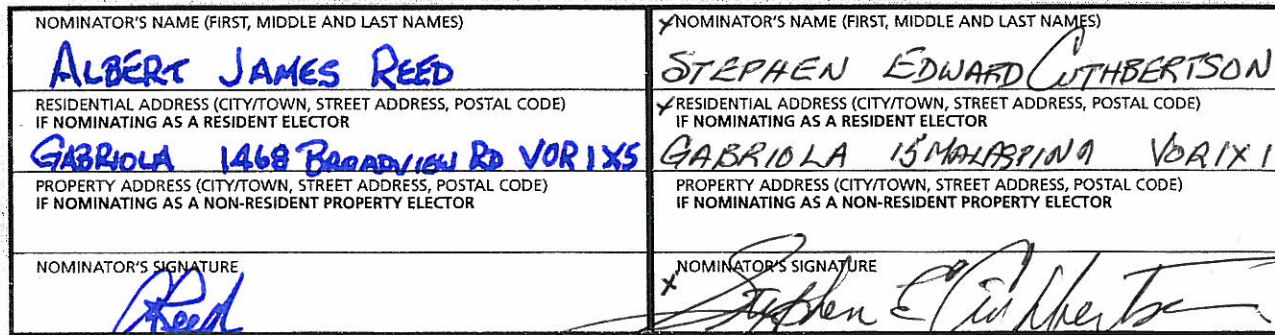 NOMINATOR'S NAME (FIRST, MIDDLE AND LAST NAMES)
ALBERT JAMES REED
RESIDENTIAL ADDRESS (CITY/TOWN, STREET ADDRESS, POSTAL CODE)
IF NOMINATING AS A RESIDENT ELECTOR
GABRIOLA 1468 BROADVIEW RD VOR 1X5
PROPERTY ADDRESS (CITY/TOWN, STREET ADDRESS, POSTAL CODE)
IF NOMINATING AS A NON-RESIDENT PROPERTY ELECTOR
NOMINATOR'S SIGNATURE
Reed
x NOMINATOR'S NAME (FIRST, MIDDLE AND LAST NAMES)
STEPHEN EDWARD CUTHBERTSON
x RESIDENTIAL ADDRESS (CITY/TOWN, STREET ADDRESS, POSTAL CODE)
IF NOMINATING AS A RESIDENT ELECTOR
GABRIOLA 15 MALASPINA VOR 1X1
PROPERTY ADDRESS (CITY/TOWN, STREET ADDRESS, POSTAL CODE)
IF NOMINATING AS A NON-RESIDENT PROPERTY ELECTOR
x NOMINATOR'S SIGNATURE
Stephen E Cuthbertson